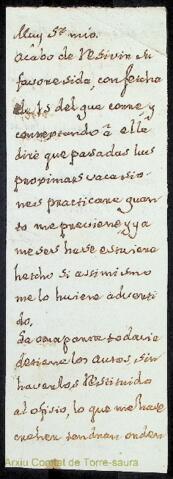 Muy Sr mio
acabo de Resivir su
favoresida, con fecha
de 15 del que come y
contestando a ella
dire que pasadas las
procimas vacasio
nes practicare quan
to me previene, y ya
meses hase estuviera
hecho si assimismo
me lo huviera adverti
do.
La otra parte todavia
detiene los autos, sin
haverlos Restituido
al ofisio, lo que me hase
creher tendran orden
Arxiu Comtat de Torre-saura